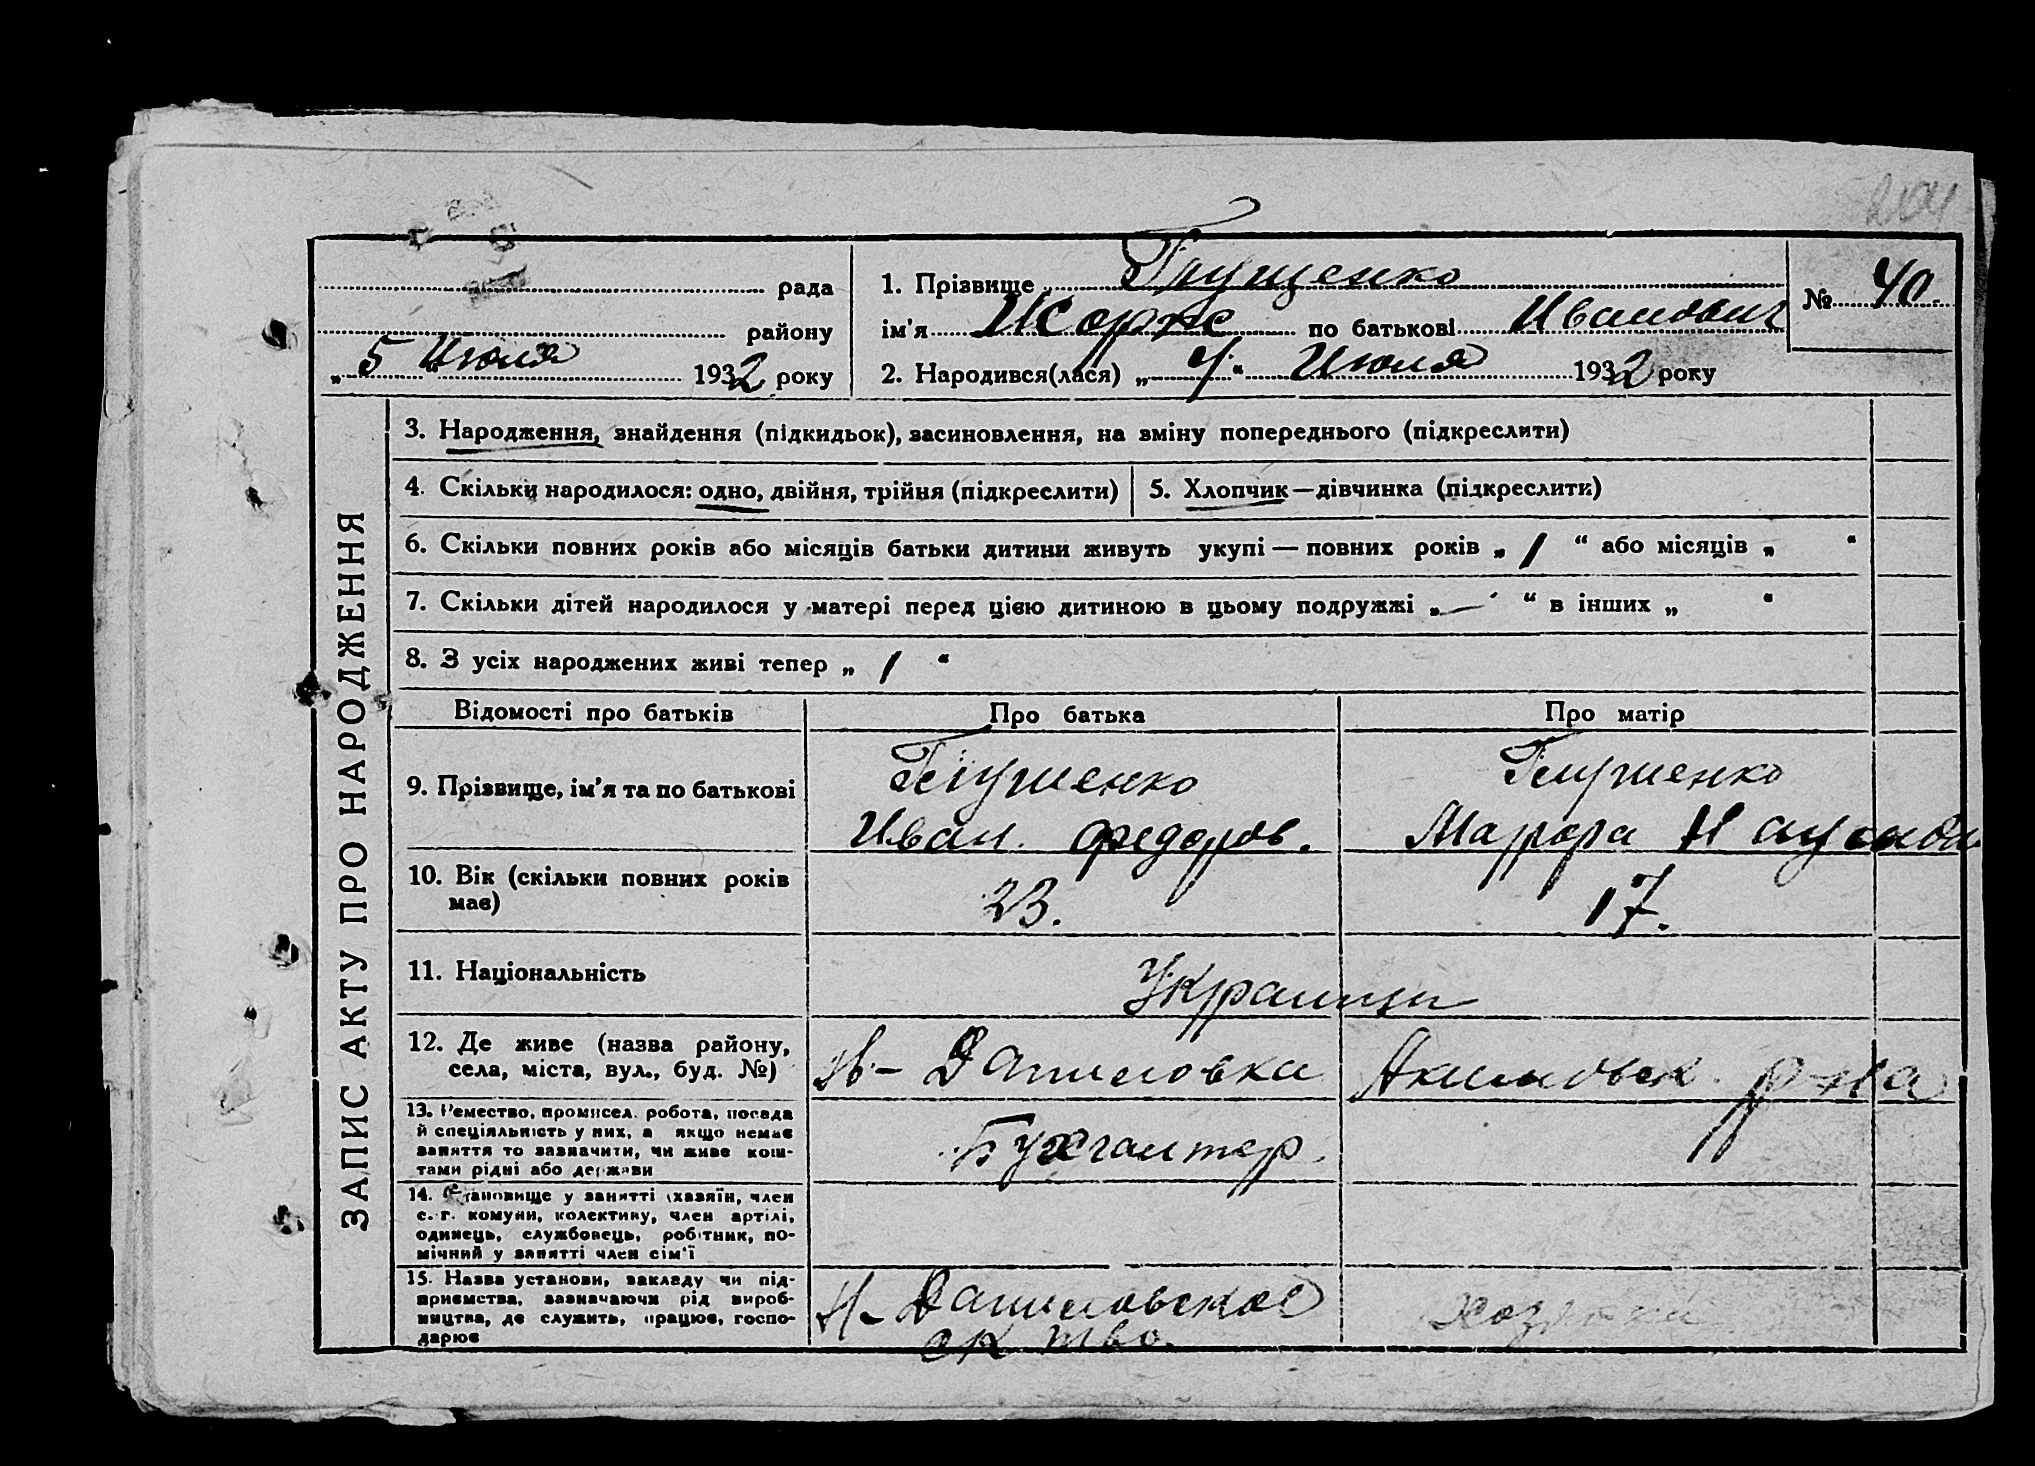 204
рада
1. Прізвище Глущенко
№ 40.
району
ім'я Жорж по батькові Иванович
„ 5 " Июля 1932 року
2. Народився(лася) „ 4 “ Июля 1932 року
ЗАПИС АКТУ ПРО НАРОДЖЕННЯ
3. Народження, знайдення (підкидьок), засиновлення, на зміну попереднього (підкреслити)
4. Скільки народилося: одно, двійня, трійня (підкреслити)
5. Хлопчик—дівчинка (підкреслити)
6. Скільки повних років або місяців батьки дитини живуть укупі — повних років „ 1 “ або місяців „ “
7. Скільки дітей народилося у матері перед цією дитиною в цьому подружжі „ — “ в інших „ “
8. З усіх народжених живі тепер „ 1 “
Відомості про батьків
Про батька
Про матір
9. Прізвище, ім'я та по батькові
Глущенко
Иван. Федоров.
Глущенко
10. Вік (скільки повних років
має)
23.
17.
11. Національність
Украинцы
12. Де живе (назва району,
села, міста, вул., буд. №)
Н- Даниловка
Акимовск. р-на
13. Ремество, промисел. робота, посада
й спеціяльність у них, а якщо немає
заняття то зазначити, чи живе кош-
тами рідні або держави
Бухгалтер
14. Становище у занятті (хазяїн, член
с.-г. комуни, колективу, член артілі,
одинець, службовець, робітник, по-
мічний у занятті член сім'ї
15. Назва установи, закладу чи під-
приємства, зазначаючи рід вироб-
ництва, де служить, працює, госпо-
дарює
Н- Даниловское
ск тво.